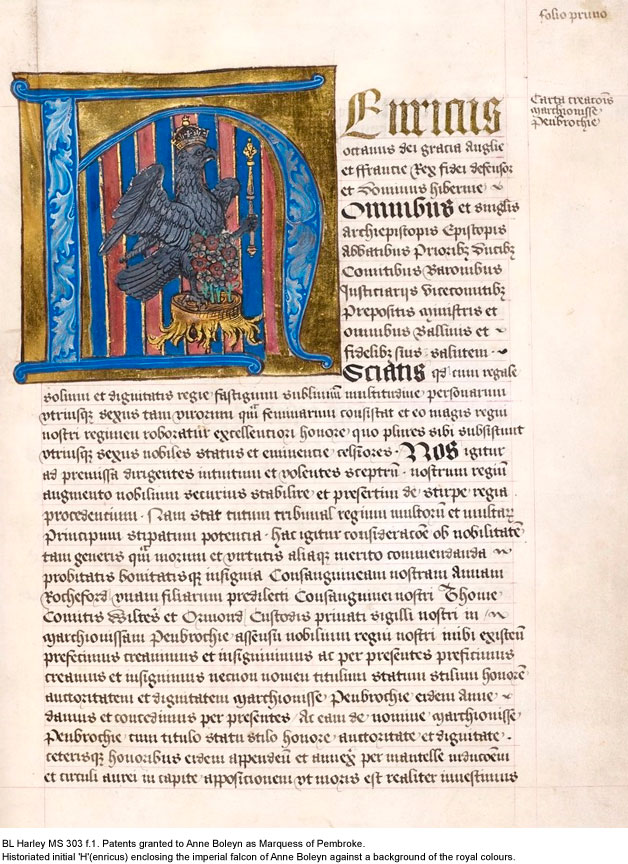 folio primo
Carta creacōis
marchionisse
Penbrochie
Enricus
octauus dei gracia Anglie
et ffrancie Rex fidei defensor
et Dominus hibernie
Omnibus et singlis
archiepiscopis Episcopis
abbatibus Prioribz Ducibz
Comitibus Baronibus
Justiciarijs Vicecomitibz
Prepositis ministris et
omnibus Balliuis et
fidelibz suis salutem
Sciatis qd cum regale
solium et dignitatis regie fastigium sublimiū multitudine personarum
vtriusqz sexus tam virorum qm̄ feminarum consistat et eo magis regni
nostri regimen roboratur excellentiori honore quo plures sibi subsistunt
vtriusqz sexus nobiles status et eminencie celsiores · Nos igitur
ad premissa dirigentes intuitum et volentes sceptrū nostrum regiū
augmento nobilium securius stabilire et presertim de stirpe regia
procedentium · Nam stat tutum tribunal regium multorū et multaꝝ
Principum stipatum potencia · hac igitur consideracōe ob nobilitatē
tam generis qm̄ morum et virtutis aliaqz merito commendanda
probitatis bonitatisqz insignia Consanguineam nostram Annam
Rocheford vnam filiarum predilecti Consanguinei nostri Thome
Comitis Wiltes̄ et Ormond Custodis priuati sigilli nostri in
marchionissam Penbrochie assensu nobilium regni nostri nibi existen̄
prefecimus creauimus et insigniuimus ac per presentes preficimus
creamus et insignimus necnon nomen titulum statum stilum honorē
auctoritatem et dignitatem marchionisse Penbrochie eidem Anne
damus et concedimus per presentes Ac eam de nomine marchionisse
Penbrochie cum titulo statu stilo honore auctoritate et dignitate ·
ceterisqz honoribus eidem appenden̄ et annex̄ per mantelle inducōem
et circuli aurei in capite apposicionem vt moris est realiter inuestimus
BL Harley MS 303 f.1. Patents granted to Anne Boleyn as Marquess of Pembroke.
Historiated initial 'H'(enricus) enclosing the imperial falcon of Anne Boleyn against a background of the royal colours.